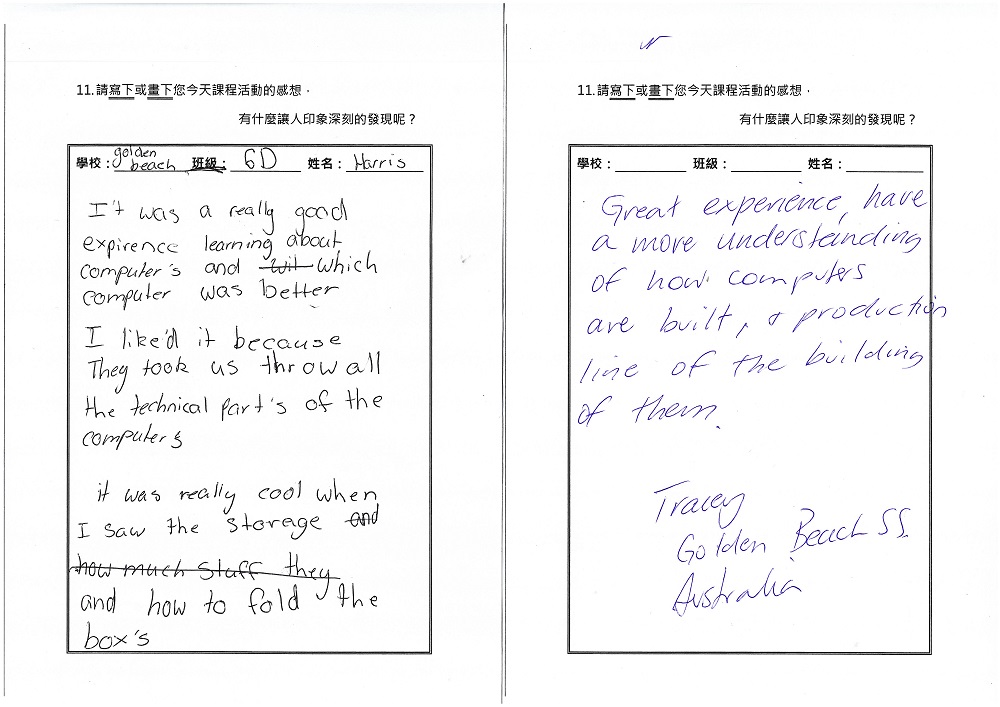 11.請寫下或畫下您今天課程活動的感想，
有什麼讓人印象深刻的發現呢？
學校：golden beach 班級：6D 姓名：Harris
It was a really good
expirence learning about
computer's and wit which
computer was better
I like'd it because
They took us throw all
the technical part's of the
computer's
it was really cool when
I saw the storage and
how much stuff they
and how to fold the
box's
11.請寫下或畫下您今天課程活動的感想，
有什麼讓人印象深刻的發現呢？
學校： 班級： 姓名：
Great experience, have
a more understanding
of how computers
are built, & production
line of the building
of them.
Tracey
Golden Beach SS.
Australia